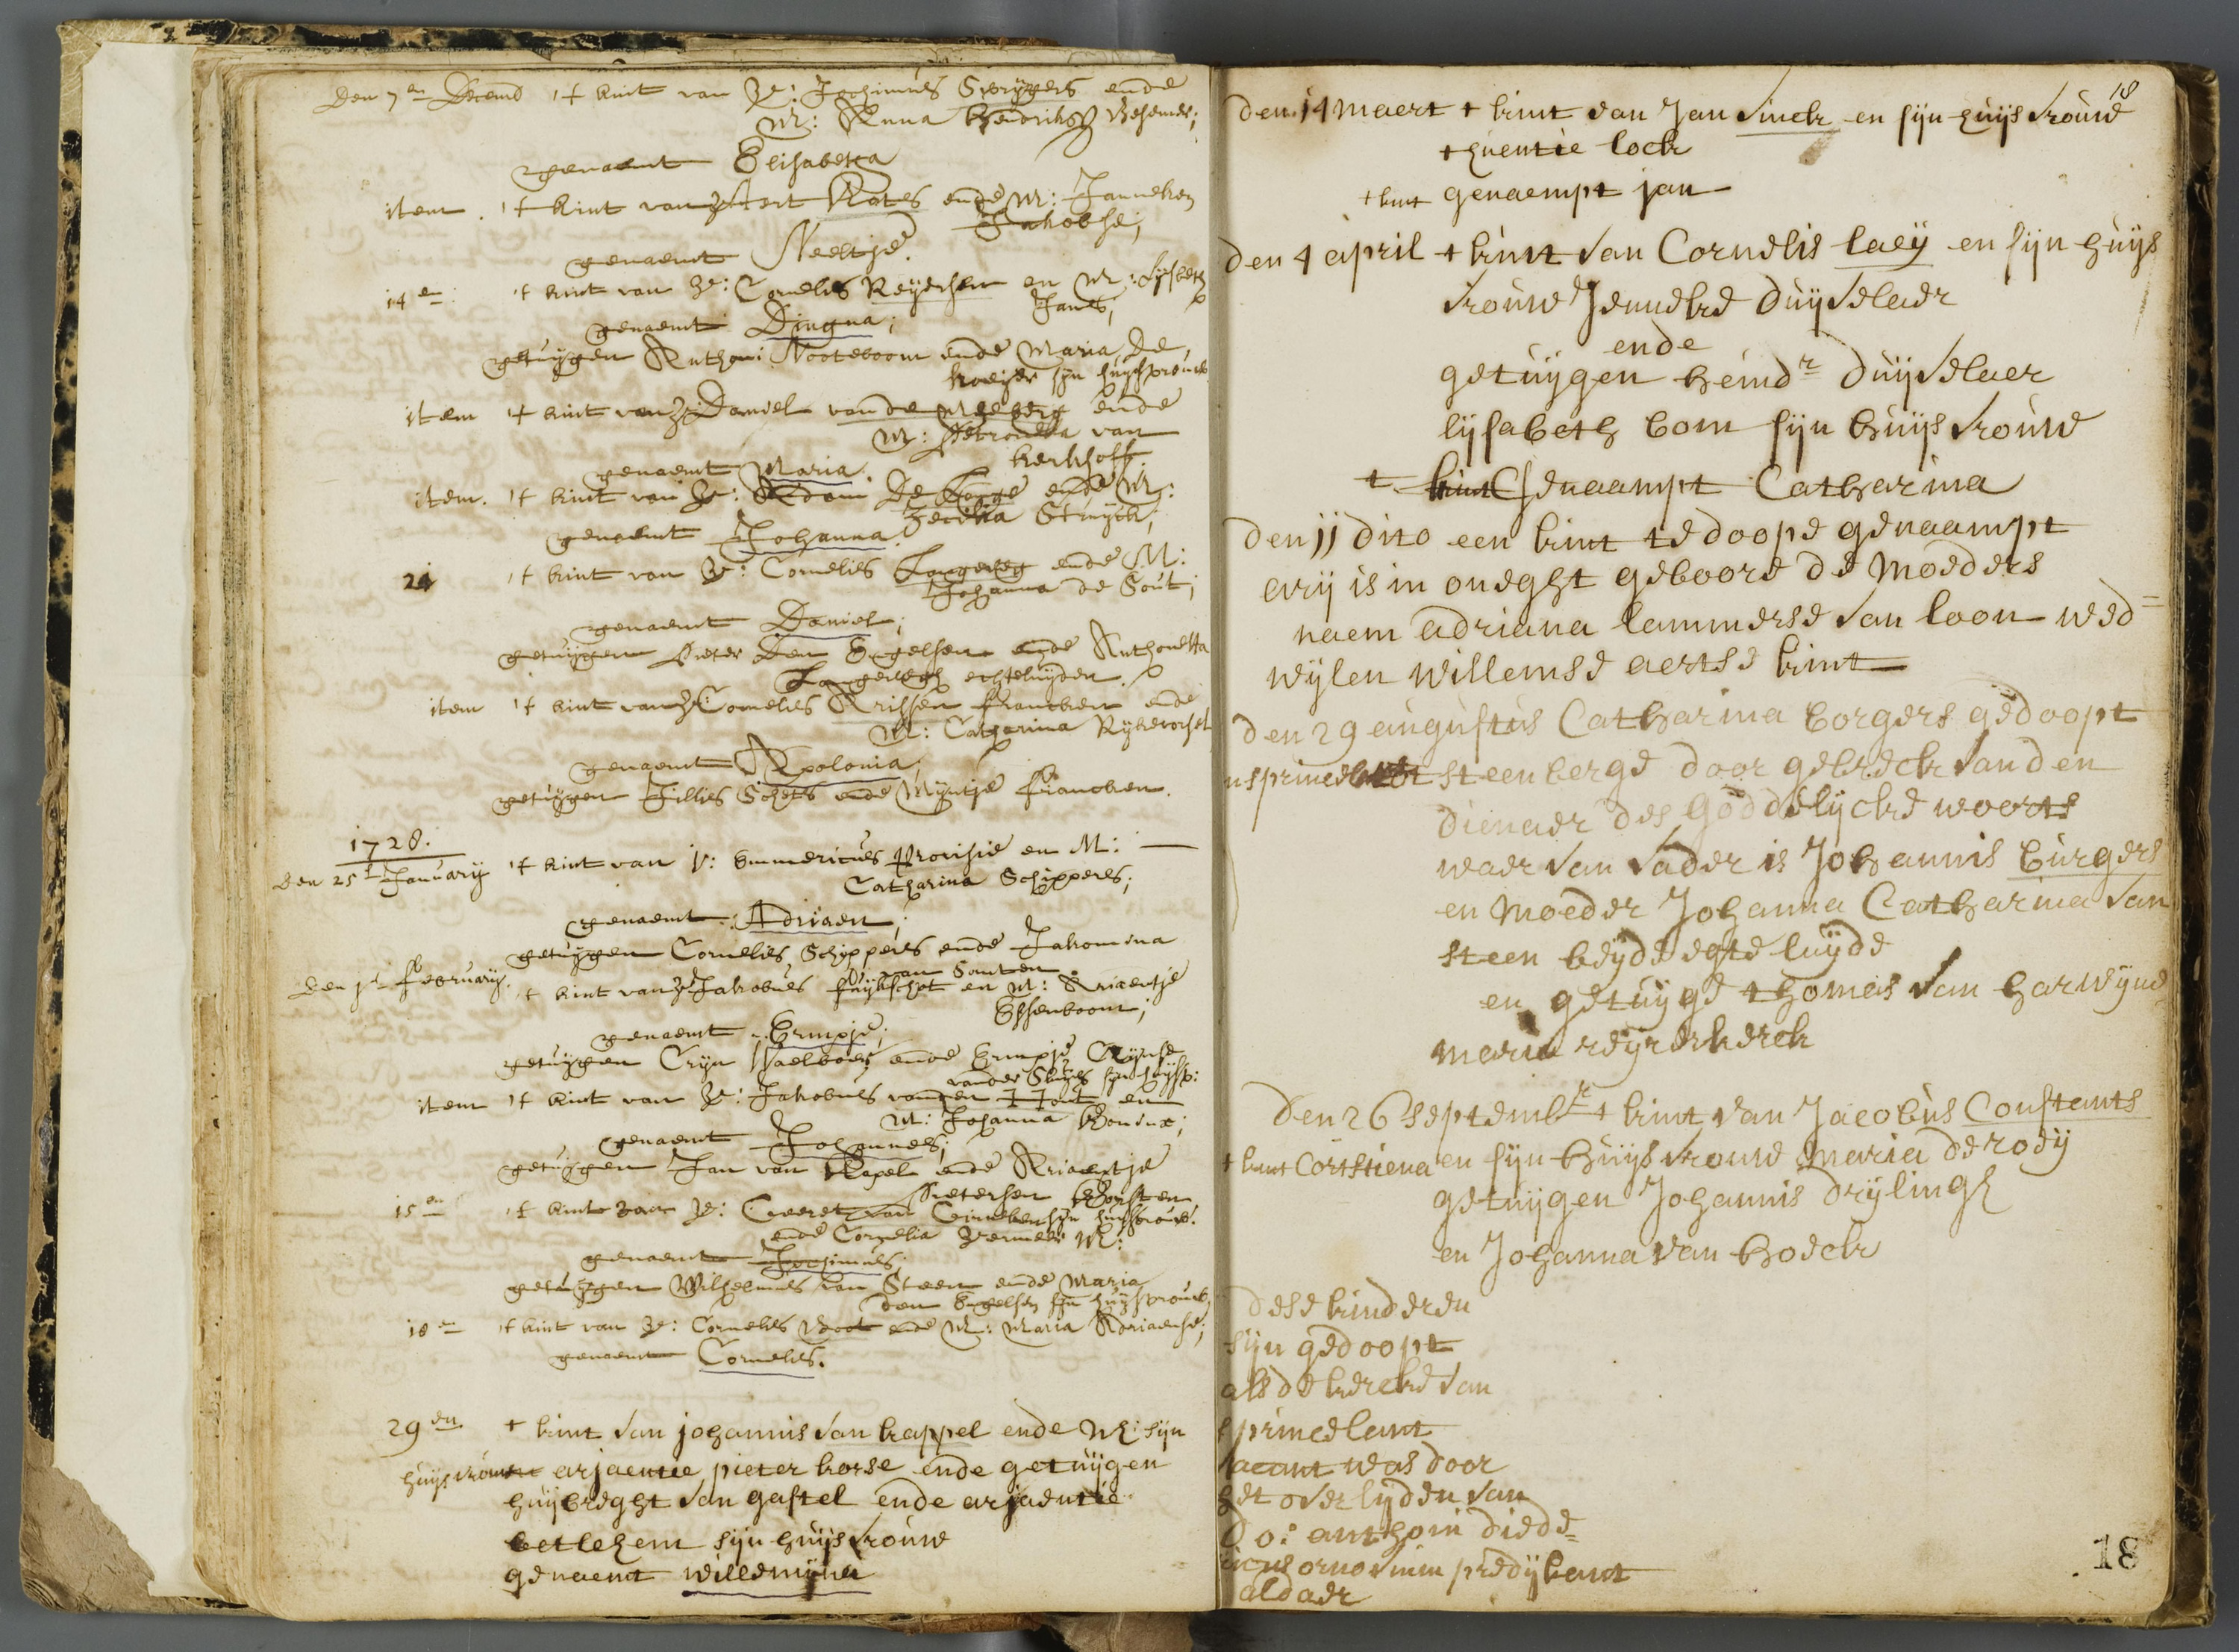 Den 7en Decemb 't kint van Ve: Jochimus Swijgers ende
M: Anna Hendriks Besemer;
genaemt Elisabetha
item. 't kint van Ve: Aert Kates ende M: Janneken
Jakobse;
genaemt Neeltje.
14en: 't kint van Ve: Cornelis Reijersen en M: Lijsbeth
Jans;
genaemt Dingna;
getuijgen Anthoni Nooteboom ende Maria de
sijn huijsvrouw.
item 't kint van Ve: Daniel van de ende
M: Petronella van
Kerkhoff
genaemt Maria.
item. 't kint van Ve: Adam De Lange ende M:
Struijck;
genaemt Johanna.
24 't kint van Ve: Cornelies Langeweg ende M:
Johanna de Sout;
genaemt Daniel;
getuijgen Pieter Den Engelsen ende Anthonetta
Langeweg echteluijden.
item 't kint van Ve: Cornelis Arissen Francken ende
M: Catharina Rijkevorsel
genaemt Apolonia;
getuijgen Jillis Schets ende Mijntje Francken.
1728.
Den 25e January 't kint van V: Emmericus Provisie en M: —
Catharina Schippers;
genaemt Adriaen;
getuijgen Cornelis Schippers ende Jakomina
van Santen.
Den 1e February. 't kint van Ve: Jakobus Fuijkschot en M: Ariaentje
Essenboom;
genaemt Ermpje;
getuijgen Crijn Waelboer ende Ermpje Crijnse
vander Sluijs sijn huijsv:
item 't kint van Ve: Jakobus van den Hout en
M: Johanna Bouinx;
genaemt Johannes;
getuijgen Jan van Kapel ende Ariaentje
Pietersen
15en 't kint van Ve: Evert van sijn huijsvrouw.
ende Cornelia Vermeer M:
genaemt Jochimus;
getuijgen Wilhelmus van Steen ende Maria
den Engelsen sijn huijsvrouw;
18en 't kint van Ve: Cornelis Boot ende M: Maria Adriaense;
genaemt Cornelis.
29en t kint van johannis van kappel ende M: sijn
huijsvrouw arjaentie pieter korse ende getuijgen
huijbreght van gastel ende arjaentie
betlehem sijn huijsvrouw
genaemt willemijna
18
den 14 maert t kint van Jan Vinck en sijn huijsvrouw
truentie lock
t kint genaempt jan
den 4 april t kint van Cornelis laeij en sijn huijs
vrouwe Jenneke duijvelaer
ende
getuijgen heindr duijvelaer
lijsabeth bom sijn huijsvrouw
t kint Genaampt Catharina
den 11 dito een kint te doope genaampt
arij is in oneght geboore de moeders
naem adriana lammerse van loon wed=
wijlen willemse aertse kint
den 29 augustus Catharina borgers gedoopt
steenberge door gebreck van den
dienaer des Goddelijcke woorts
waer van vader is Johannis burgers
en moeder Johanna Catharina van
steen beijde egte luijde
en getuijge thomas van harwijne
maria reijerkerck
den 26 septembr t kint van Jacobus Constants
t kint Corstiena en sijn huijsvrouw maria de roeij
getuijgen Johannis drijlingh
en Johanna van hoeck
dese kinderen
sijn gedoopt
als de kercke van
princelant
vacant was door
het overlijden van
Do: anthoni diede=
ricus ornovium predijkant
aldaer
18